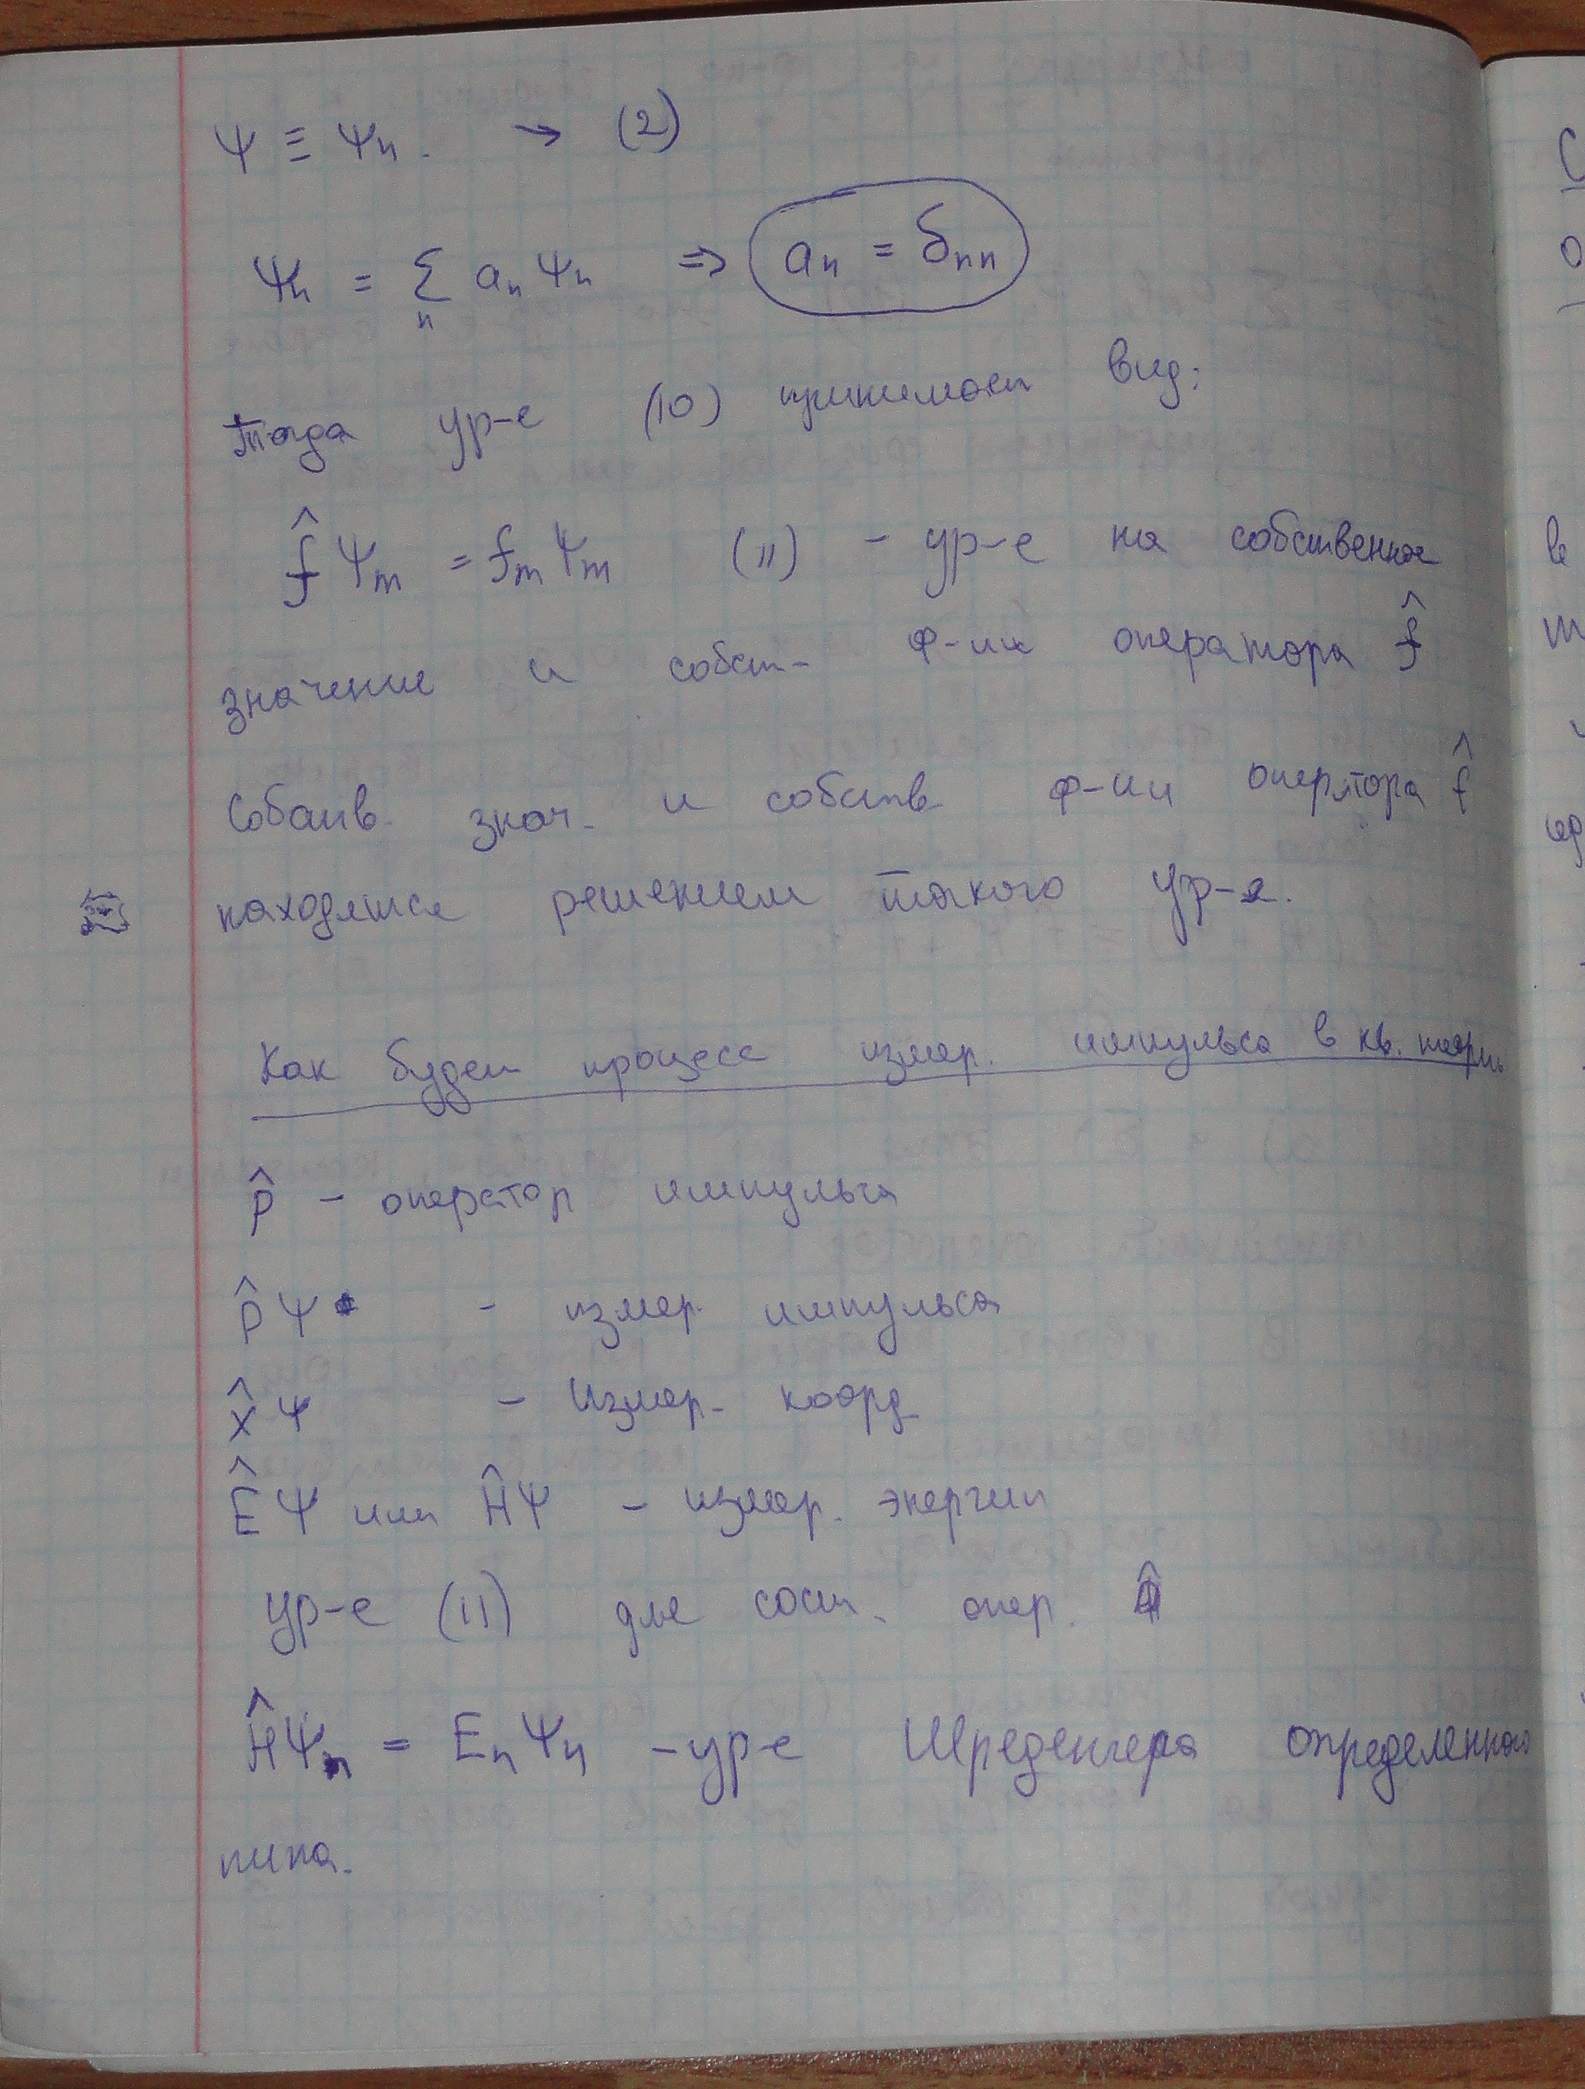 Ψ ≡ Ψn. → (2)
Ψn = Σ an Ψn ⇒ an = δnn
n
тогда ур-е (10) принимает вид:
f̂ Ψm = fm Ψm (11) - ур-е на собственное
значение и собст- ф-ии оператора f̂
Собств. знач. и собств ф-ии оператора f̂
находятся решением такого ур-я.
Как будет процесс измер. импульса в кв. теории
p̂ - оператор импульса
p̂ Ψ - измер. импульса
x̂ Ψ - Измер. коорд
Ê Ψ или Ĥ Ψ - измер. энергии
ур-е (11) для сост. опер.
Ĥ Ψn = En Ψn - ур-е Шредингера определенного
типа.